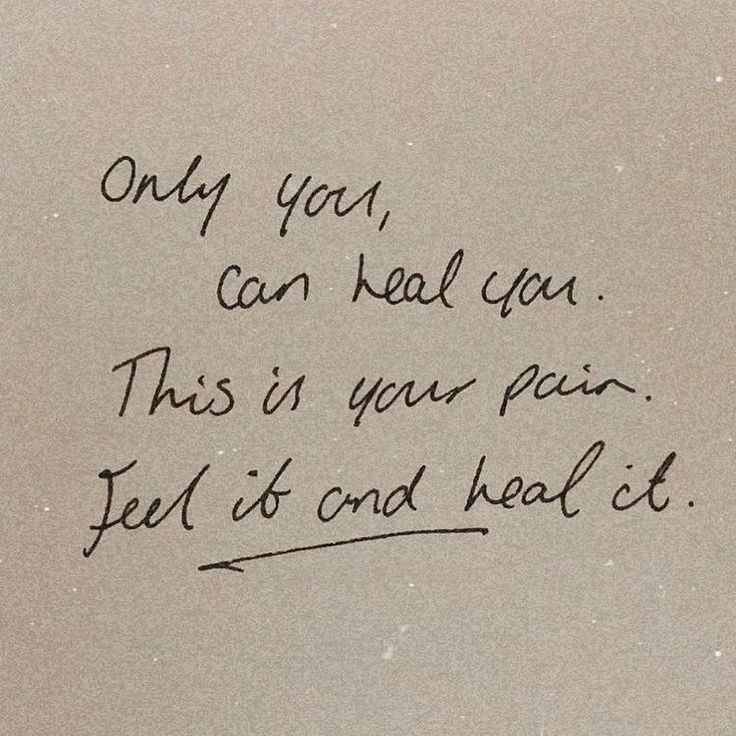 Only you,
can heal you.
This is your pain.
Feel it and heal it.